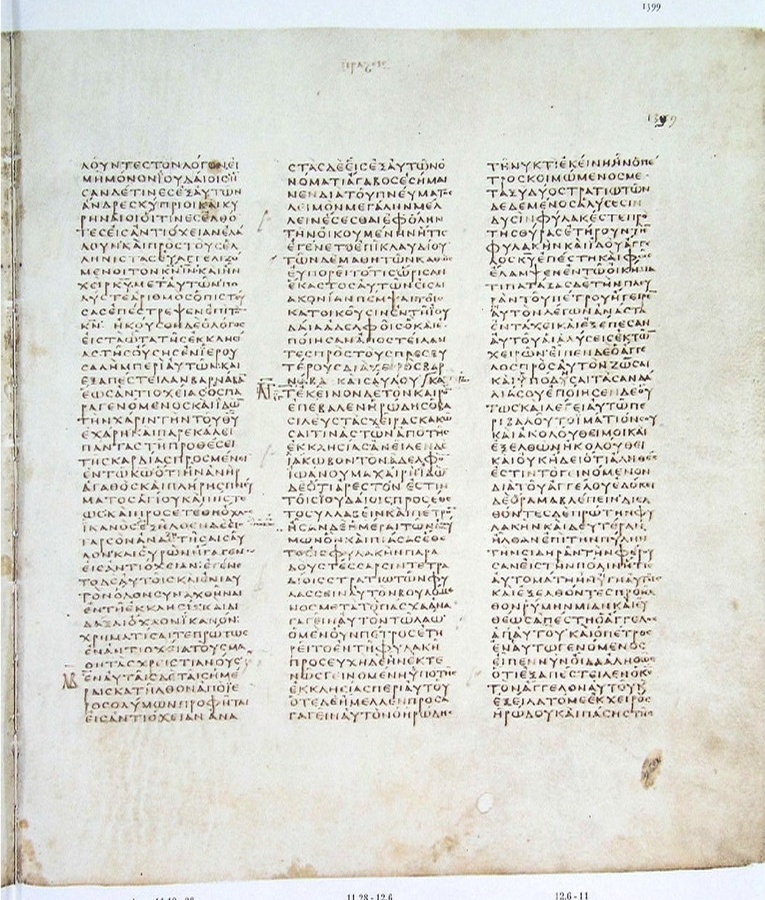 1399
ΠΡΑΞΕΙC
1399
ΛΟΥΝΤΕCΤΟΝΛΟΓΟΝΕΙ
ΜΗΜΟΝΟΝΙΟΥΔΑΙΟΙCΗ
CΑΝΔΕΤΙΝΕCΕΞΑΥΤΩΝ
ΑΝΔΡΕCΚΥΠΡΙΟΙΚΑΙΚΥ
ΡΗΝΑΙΟΙΟΙΤΙΝΕCΕΛΘΟ
ΤΕCΕΙCΑΝΤΙΟΧΕΙΑΝΕΛΑ
ΛΟΥΝΚΑΙΠΡΟCΤΟΥCΕΛ
ΛΗΝΙCΤΑCΕΥΑΓΓΕΛΙΖΟ
ΜΕΝΟΙΤΟΝΚΝΙΝΚΑΙΗΝ
ΧΕΙΡΚΥΜΕΤΑΥΤΩΝΠΟ
ΛΥCΤΕΑΡΙΘΜΟCΟΠΙCΤΕΥ
CΑCΕΠΕCΤΡΕΨΕΝΕΠΙΤΟ
ΚΝ ΗΚΟΥCΘΗΔΕΟΛΟΓΟC
ΕΙCΤΑΩΤΑΤΗCΕΚΚΛΗCΙ
ΑCΤΗCΟΥCΗCΕΝΙΕΡΟΥ
CΑΛΗΜΠΕΡΙΑΥΤΩΝΚΑΙ
ΕΞΑΠΕCΤΕΙΛΑΝΒΑΡΝΑΒΑ
ΕΩCΑΝΤΙΟΧΕΙΑCΟCΠΑ
ΡΑΓΕΝΟΜΕΝΟCΚΑΙΙΔΩ
ΤΗΝΧΑΡΙΝΤΗΝΤΟΥΘΥ
ΕΧΑΡΗΚΑΙΠΑΡΕΚΑΛΕΙ
ΠΑΝΤΑCΤΗΠΡΟΘΕCΕΙ
ΤΗCΚΑΡΔΙΑCΠΡΟCΜΕΝΕΙ
ΕΝΤΩΚΩΟΤΙΗΝΑΝΗΡ
ΑΓΑΘΟCΚΑΙΠΛΗΡΗCΠΝΥ
ΜΑΤΟCΑΓΙΟΥΚΑΙΠΙCΤΕ
ΩCΚΑΙΠΡΟCΕΤΕΘΗΟΧΛΟ
ΙΚΑΝΟCΕΞΗΛΘΕΝΔΕΕΙC
ΤΑΡCΟΝΑΝΑCΤΗCΑΙCΑΥ
ΛΟΝΚΑΙΕΥΡΩΝΗΓΑΓΕΝ
ΕΙCΑΝΤΙΟΧΕΙΑΝΕΓΕΝΕ
ΤΟΔΕΑΥΤΟΙCΚΑΙΕΝΙΑΥ
ΤΟΝΟΛΟΝCΥΝΑΧΘΗΝΑΙ
ΕΝΤΗΕΚΚΛΗCΙΑΚΑΙΔΙ
ΔΑΞΑΙΟΧΛΟΝΙΚΑΝΟΝ
ΧΡΗΜΑΤΙCΑΙΤΕΠΡΩΤΩC
ΕΝΑΝΤΙΟΧΕΙΑΤΟΥCΜΑ
ΘΗΤΑCΧΡΕΙCΤΙΑΝΟΥC
ΕΝΑΥΤΑΙCΔΕΤΑΙCΗΜΕ
ΡΑΙCΚΑΤΗΛΘΟΝΑΠΟΙΕ
ΡΟCΟΛΥΜΩΝΠΡΟΦΗΤΑΙ
ΕΙCΑΝΤΙΟΧΕΙΑΝ ΑΝΑ
CΤΑCΔΕΕΙCΕΞΑΥΤΩΝΟ
ΝΟΜΑΤΙΑΓΑΒΟCΕCΗΜΑΙ
ΝΕΝΔΙΑΤΟΥΠΝΕΥΜΑΤΟC
ΛΕΙΜΟΝΜΕΓΑΛΗΝΜΕΛ
ΛΕΙΝΕCΕCΘΑΙΕΦΟΛΗΝ
ΤΗΝΟΙΚΟΥΜΕΝΗΝΗΤΙC
ΕΓΕΝΕΤΟΕΠΙΚΛΑΥΔΙΟΥ
ΤΩΝΔΕΜΑΘΗΤΩΝΚΑΘΩC
ΕΥΠΟΡΕΙΤΟΤΙCΩΡΙCΑΝ
ΕΚΑCΤΟCΑΥΤΩΝΕΙCΔΙ
ΑΚΟΝΙΑΝΠΕΜΨΑΙΤΟΙC
ΚΑΤΟΙΚΟΥCΙΝΕΝΤΗΙΟΥ
ΔΑΙΑΑΔΕΛΦΟΙCΟΚΑΙΕ
ΠΟΙΗCΑΝΑΠΟCΤΕΙΛΑΝ
ΤΕCΠΡΟCΤΟΥCΠΡΕCΒΥ
ΤΕΡΟΥCΔΙΑΧΕΙΡΟCΒΑΡ
ΝΑΒΑ ΚΑΙCΑΥΛΟΥ ΚΑ
ΤΕΚΕΙΝΟΝΔΕΤΟΝΚΑΙΡΟ
ΕΠΕΒΑΛΕΝΗΡΩΔΗCΟΒΑ
CΙΛΕΥCΤΑCΧΕΙΡΑCΚΑΚΩ
CΑΙΤΙΝΑCΤΩΝΑΠΟΤΗC
ΕΚΚΛΗCΙΑCΑΝΕΙΛΕΝΔΕ
ΙΑΚΩΒΟΝΤΟΝΑΔΕΛΦΟ
ΙΩΑΝΟΥΜΑΧΑΙΡΗΙΔΩ
ΔΕΟΤΙΑΡΕCΤΟΝΕCΤΙΝ
ΤΟΙCΙΟΥΔΑΙΟΙCΠΡΟCΕΘΕ
ΤΟCΥΛΛΑΒΕΙΝΚΑΙΠΕΤΡΟ
ΗCΑΝΔΕΗΜΕΡΑΙΤΩΝΑΖΥ
ΜΩΝΟΝΚΑΙΠΙΑCΑCΕΘΕ
ΤΟΕΙCΦΥΛΑΚΗΝΠΑΡΑ
ΔΟΥCΤΕCCΑΡCΙΝΤΕΤΡΑ
ΔΙΟΙCCΤΡΑΤΙΩΤΩΝΦΥ
ΛΑCCΕΙΝΑΥΤΟΝΒΟΥΛΟΜΕ
ΝΟCΜΕΤΑΤΟΠΑCΧΑΑΝΑ
ΓΑΓΕΙΝΑΥΤΟΝΤΩΛΑΩ
ΟΜΕΝΟΥΝΠΕΤΡΟCΕΤΗ
ΡΕΙΤΟΕΝΤΗΦΥΛΑΚΗ
ΠΡΟCΕΥΧΗΔΕΗΝΕΚΤΕ
ΝΩCΓΕΙΝΟΜΕΝΗΥΠΟΤΗC
ΕΚΚΛΗCΙΑCΠΕΡΙΑΥΤΟΥ
ΟΤΕΔΕΗΜΕΛΛΕΝΠΡΟCΑ
ΓΑΓΕΙΝΑΥΤΟΝΟΗΡΩΔΗC
ΤΗΝΥΚΤΙΕΚΕΙΝΗΗΝΟΠΕ
ΤΡΟCΚΟΙΜΩΜΕΝΟCΜΕ
ΤΑΞΥΔΥΟCΤΡΑΤΙΩΤΩΝ
ΔΕΔΕΜΕΝΟCΑΛΥCΕCΙΝ
ΔΥCΙΝΦΥΛΑΚΕCΤΕΠΡΟ
ΤΗCΘΥΡΑCΕΤΗΡΟΥΝΤΗ
ΦΥΛΑΚΗΝΚΑΙΙΔΟΥΑΓΓΕ
ΛΟCΚΥΕΠΕCΤΗΚΑΙΦΩC
ΕΛΑΜΨΕΝΕΝΤΩΟΙΚΗΜΑ
ΤΙΠΑΤΑΞΑCΔΕΤΗΝΠΛΕΥ
ΡΑΝΤΟΥΠΕΤΡΟΥΗΓΕΙΡΕ
ΑΥΤΟΝΛΕΓΩΝΑΝΑCΤΑ
ΕΝΤΑΧΕΙΚΑΙΕΞΕΠΕCΑΝ
ΑΥΤΟΥΑΙΑΛΥCΕΙCΕΚΤΩ
ΧΕΙΡΩΝΕΙΠΕΝΔΕΟΑΓΓΕ
ΛΟCΠΡΟCΑΥΤΟΝΖΩCΑΙ
ΚΑΙΥΠΟΔΗCΑΙΤΑCΑΝΔΑ
ΛΙΑCΟΥΕΠΟΙΗCΕΝΔΕΟΥ
ΤΩCΚΑΙΛΕΓΕΙΑΥΤΩΠΕ
ΡΙΒΑΛΟΥΤΟΙΜΑΤΙΟΝCΟΥ
ΚΑΙΑΚΟΛΟΥΘΕΙΜΟΙΚΑΙ
ΕΞΕΛΘΩΝΗΚΟΛΟΥΘΕΙ
ΚΑΙΟΥΚΗΔΕΙΟΤΙΑΛΗΘΕC
ΕCΤΙΝΤΟΓΕΙΝΟΜΕΝΟΝ
ΔΙΑΤΟΥΑΓΓΕΛΟΥΕΔΟΚΕΙ
ΔΕΟΡΑΜΑΒΛΕΠΕΙΝΔΙΕΛ
ΘΟΝΤΕCΔΕΠΡΩΤΗΝΦΥ
ΛΑΚΗΝΚΑΙΔΕΥΤΕΡΑΝ
ΗΛΘΑΝΕΠΙΤΗΝΠΥΛΗΝ
ΤΗΝCΙΔΗΡΑΝΤΗΝΦΕΡΟΥ
CΑΝΕΙCΤΗΝΠΟΛΙΝΗΤΙC
ΑΥΤΟΜΑΤΗΗΝΥΓΗΑΥΤΟΙC
ΚΑΙΕΞΕΛΘΟΝΤΕCΠΡΟΗΛ
ΘΟΝΡΥΜΗΝΜΙΑΝΚΑΙΕΥ
ΘΕΩCΑΠΕCΤΗΟΑΓΓΕΛΟC
ΑΠΑΥΤΟΥ ΚΑΙΟΠΕΤΡΟC
ΕΝΑΥΤΩΓΕΝΟΜΕΝΟC
ΕΙΠΕΝΝΥΝΟΙΔΑΑΛΗΘΩC
ΟΤΙΕΞΑΠΕCΤΕΙΛΕΝΟΚC
ΤΟΝΑΓΓΕΛΟΝΑΥΤΟΥΚΑΙ
ΕΞΕΙΛΑΤΟΜΕΕΚΧΕΙΡΟC
ΗΡΩΔΟΥΚΑΙΠΑCΗCΤΗC
11.28 - 12.6
12.6 - 11